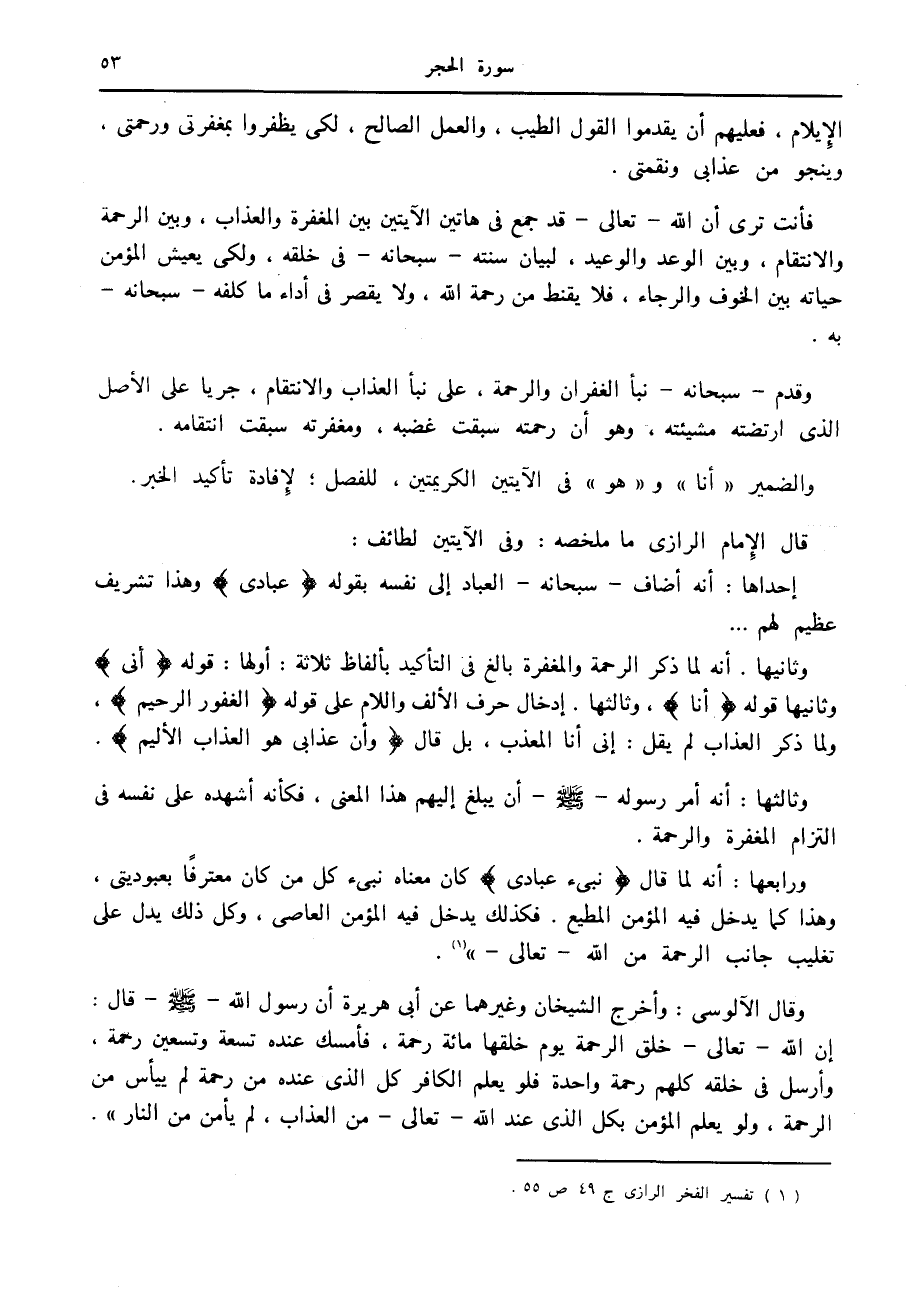 سورة الحجر ٥٣
الإِيلام ، فعليهم أن يقدموا القول الطيب ، والعمل الصالح ، لكى يظفروا بمغفرتى ورحمتى ،
وينجو من عذابى ونقمتى .
فأنت ترى أن الله – تعالى – قد جمع فى هاتين الآيتين بين المغفرة والعذاب ، وبين الرحمة
والانتقام ، وبين الوعد والوعيد ، لبيان سنته – سبحانه – فى خلقه ، ولكى يعيش المؤمن
حياته بين الخوف والرجاء ، فلا يقنط من رحمة الله ، ولا يقصر فى أداء ما كلفه – سبحانه –
به .
وقدم – سبحانه – نبأ الغفران والرحمة ، على نبأ العذاب والانتقام ، جريا على الأصل
الذى ارتضته مشيئته ، وهو أن رحمته سبقت غضبه ، ومغفرته سبقت انتقامه .
والضمير « أنا » و « هو » فى الآيتين الكريمتين ، للفصل ؛ لإِفادة تأكيد الخبر .
قال الإِمام الرازى ما ملخصه : وفى الآيتين لطائف :
إحداها : أنه أضاف – سبحانه – العباد إلى نفسه بقوله ﴿ عبادى ﴾ وهذا تشريف
عظيم لهم ...
وثانيها . أنه لما ذكر الرحمة والمغفرة بالغ فى التأكيد بألفاظ ثلاثة : أولها : قوله ﴿ أنى ﴾
وثانيها قوله ﴿ أنا ﴾ ، وثالثها . إدخال حرف الألف واللام على قوله ﴿ الغفور الرحيم ﴾ ،
ولما ذكر العذاب لم يقل : إنى أنا المعذب ، بل قال ﴿ وأن عذابى هو العذاب الأليم ﴾ .
وثالثها : أنه أمر رسوله – ﷺ – أن يبلغ إليهم هذا المعنى ، فكأنه أشهده على نفسه فى
التزام المغفرة والرحمة .
ورابعها : أنه لما قال ﴿ نبىء عبادى ﴾ كان معناه نبىء كل من كان معترفًا بعبوديتى ،
وهذا كما يدخل فيه المؤمن المطيع . فكذلك يدخل فيه المؤمن العاصى ، وكل ذلك يدل على
تغليب جانب الرحمة من الله – تعالى – »(١) .
وقال الآلوسى : وأخرج الشيخان وغيرهما عن أبى هريرة أن رسول الله – ﷺ – قال :
إن الله – تعالى – خلق الرحمة يوم خلقها مائة رحمة ، فأمسك عنده تسعة وتسعين رحمة ،
وأرسل فى خلقه كلهم رحمة واحدة فلو يعلم الكافر كل الذى عنده من رحمة لم ييأس من
الرحمة ، ولو يعلم المؤمن بكل الذى عند الله – تعالى – من العذاب ، لم يأمن من النار » .
( ١ ) تفسير الفخر الرازى ج ٤٩ ص ٥٥ .